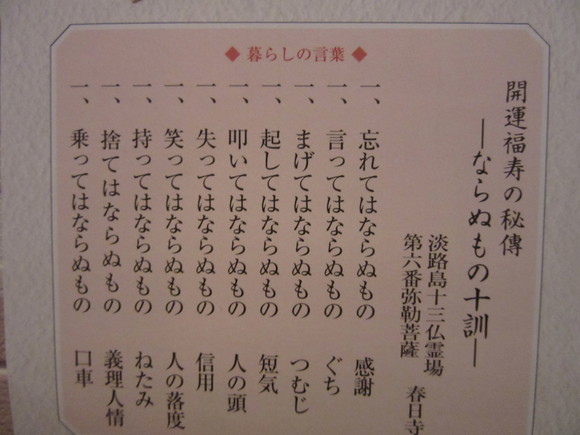 ◆暮らしの言葉◆
開運福寿の秘傳
―ならぬもの十訓―
淡路島十三仏霊場
第六番弥勒菩薩 春日寺
一、忘れてはならぬもの 感謝
一、言ってはならぬもの ぐち
一、まげてはならぬもの つむじ
一、起してはならぬもの 短気
一、叩いてはならぬもの 人の頭
一、失ってはならぬもの 信用
一、笑ってはならぬもの 人の落度
一、持ってはならぬもの ねたみ
一、捨てはならぬもの 義理人情
一、乗ってはならぬもの 口車